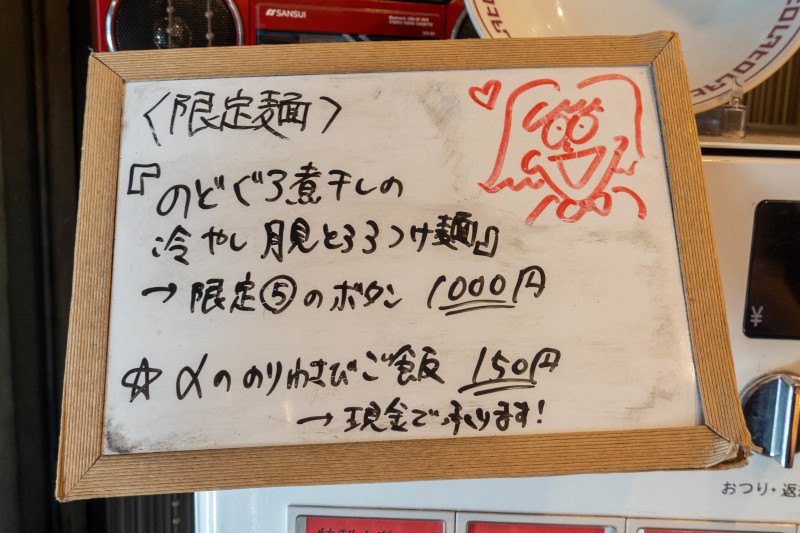 SANSUI
〈限定麺〉
『のどぐろ煮干しの
冷やし月見とろろつけ麺』
→ 限定⑤のボタン 1000円
☆〆ののりわさびご飯 150円
→現金でふります!
¥
おつり・返